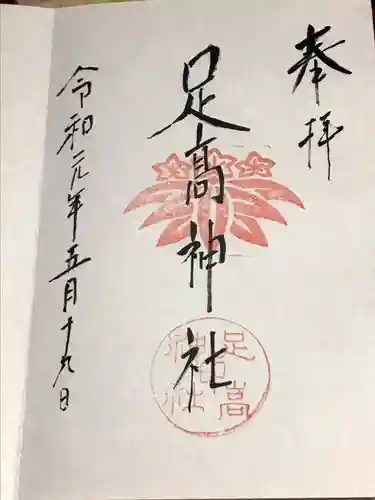 奉拝
足高神社
足高神社
令和元年五月十九日